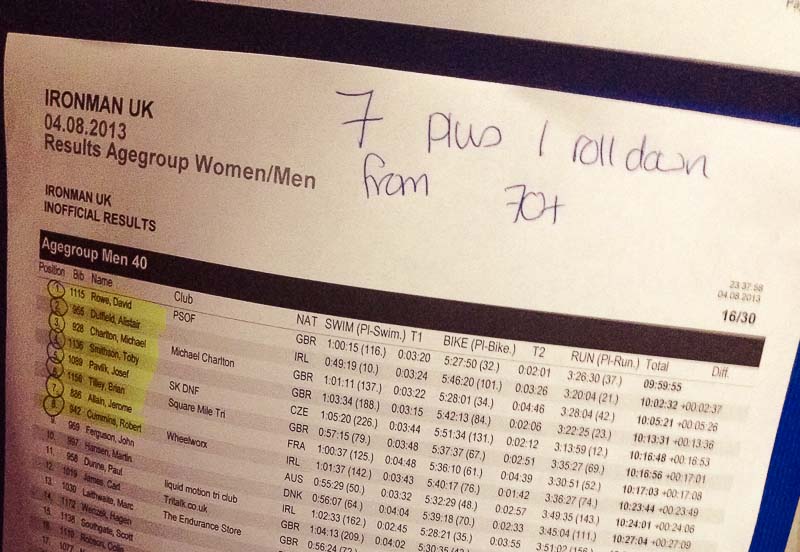 IRONMAN UK
04.08.2013
Results Agegroup Women/Men
7 plus 1 roll down
from 70+
IRONMAN UK
INOFFICIAL RESULTS
23:37:58
04.08.2013
16/30
Agegroup Men 40
Position Bib Name Club NAT SWIM (Pl-Swim.) T1 BIKE (Pl-Bike.) T2 RUN (Pl-Run.) Total Diff.
1 1115 Rowe, David PSOF GBR 1:00:15 (116.) 0:03:20 5:27:50 (32.) 0:02:01 3:26:30 (37.) 09:59:55
Duffield, Alistair IRL 0:49:19 (10.) 0:03:24 5:46:20 (101.) 0:03:26 3:20:04 (21.) 10:02:32 +00:02:37
928 Charlton, Michael Michael Charlton GBR 1:01:11 (137.) 0:03:22 5:28:01 (34.) 0:04:46 3:28:04 (42.) 10:05:21 +00:05:26
1136 Smithson, Toby GBR 1:03:34 (188.) 0:03:15 5:42:13 (84.) 0:02:06 3:22:25 (23.) 10:13:31 +00:13:36
1089 Pavlik, Josef SK DNF CZE 1:05:20 (226.) 0:03:44 5:51:34 (131.) 0:02:12 3:13:59 (12.) 10:16:48 +00:16:53
1156 Tilley, Brian Square Mile Tri GBR 0:57:15 (79.) 0:03:48 5:37:37 (67.) 0:02:51 3:35:27 (69.) 10:16:56 +00:17:01
7 886 Allain, Jerome FRA 1:00:37 (125.) 0:04:48 5:36:10 (61.) 0:04:39 3:30:51 (52.) 10:17:03 +00:17:08
8 942 Cummins, Robert Wheelworx IRL 1:01:37 (142.) 0:03:43 5:40:17 (76.) 0:01:42 3:36:27 (74.) 10:23:44 +00:23:49
9. 969 Ferguson, John AUS 0:55:29 (50.) 0:03:32 5:32:29 (48.) 0:02:57 3:49:35 (143.) 10:24:01 +00:24:06
10. 997 Hansen, Martin DNK 0:56:07 (64.) 0:04:04 5:39:18 (70.) 0:02:33 3:45:04 (111.) 10:27:04 +00:27:09
11. 958 Dunne, Paul IRL 1:02:33 (162.) 0:02:45 5:28:21 (35.) 0:03:55 3:51:02
12. 1019 James, Carl liquid motion tri club GBR 1:04:13 (209.) 0:04:02 5:30:35
13. 1030 Laithwaite, Marc Tritalk.co.uk GBR 0:56:24
14. 1172 Wenzek, Hagen The Endurance Store
15. 1138 Southgate, Scott
16. 1119 Robson, Colin
17. 1077